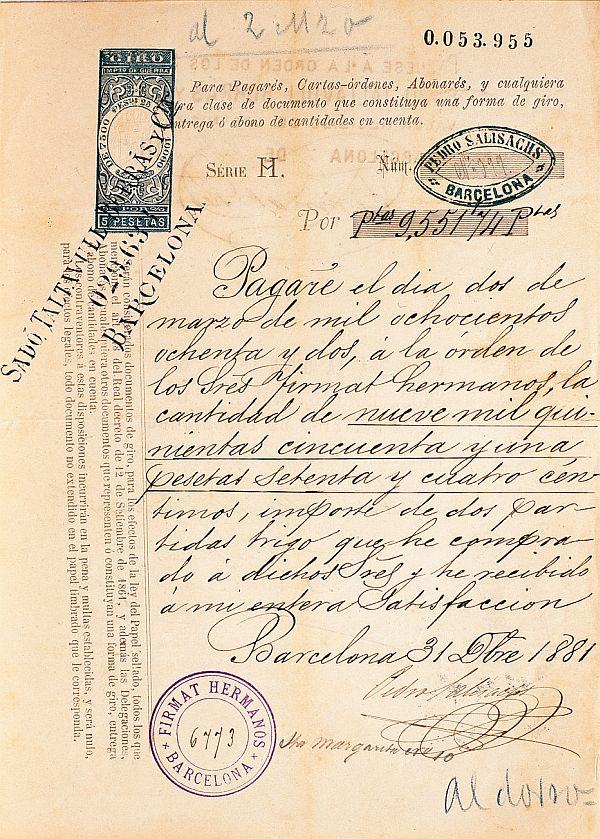 al 2 Mzo
0.053.955
GIRO
IMPTO DE GUERRA
PESTS 25
DE 7500
10000
5 PESETAS
Para Pagarés, Cartas-órdenes, Abonarés, y cualquiera
otra clase de documento que constituya una forma de giro,
entrega ó abono de cantidades en cuenta.
SÉRIE H.
Núm.
PEDRO SALISACHS
BARCELONA
Por Ptas 9,551"74 Ptas
Pagaré el dia dos de
marzo de mil ochocientos
ochenta y dos, á la órden de
los Sres Firmat hermanos, la
cantidad de nueve mil qui-
nientas cincuenta y una
pesetas setenta y cuatro cén-
timos, importe de dos par-
tidas trigo que he compra-
do á dichos Sres y he recibido
á mi entera Satisfaccion
Barcelona 31 Dbre 1881
Pedro Salisachs
FIRMAT HERMANOS
6773
BARCELONA
Sta Margarita
al dorso
BARCELONA.
documentos de giro, para los efectos de la ley del Papel sellado, todos los que
del Real decreto de 12 de Setiembre de 1861, y además las Delegaciones,
Abonarés y cualesquiera otros documentos que representen ó constituyan una forma de giro, entrega
ó abono de cantidades en cuenta.
contraventores á estas disposiciones incurrirán en la pena y multas establecidas, y será nulo,
para los efectos legales, todo documento no extendido en el papel timbrado que le corresponda.